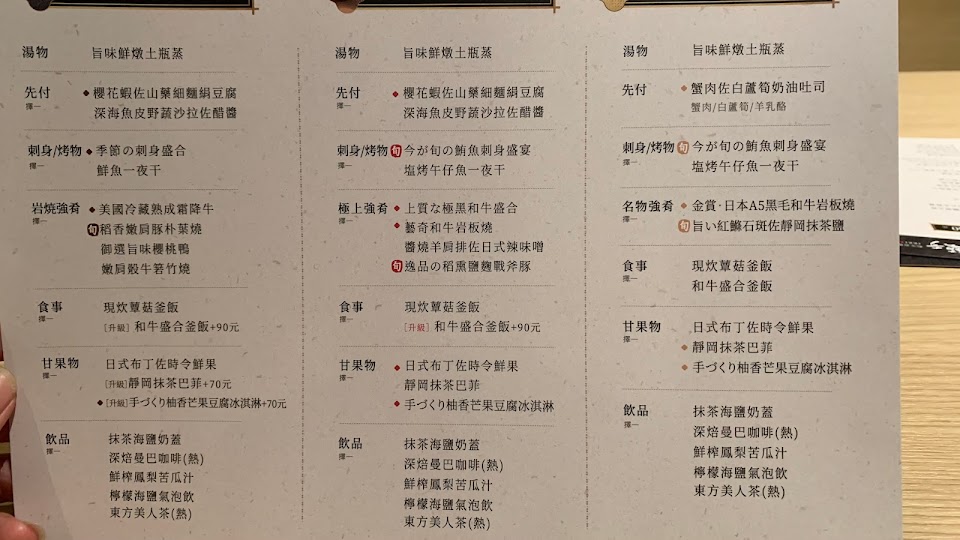 湯物 旨味鮮燉土瓶蒸
先付 擇一 櫻花蝦佐山藥細麵絹豆腐
深海魚皮野蔬沙拉佐醋醬
刺身/烤物 擇一 季節の刺身盛合
鮮魚一夜干
岩燒強肴 擇一 美國冷藏熟成霜降牛
旬 稻香嫩肩豚朴葉燒
御選旨味櫻桃鴨
嫩肩骰牛箬竹燒
食事 擇一 現炊蕈菇釜飯
[升級] 和牛盛合釜飯+90元
甘果物 擇一 日式布丁佐時令鮮果
[升級] 靜岡抹茶巴菲+70元
[升級] 手づくり柚香芒果豆腐冰淇淋+70元
飲品 擇一 抹茶海鹽奶蓋
深焙曼巴咖啡(熱)
鮮榨鳳梨苦瓜汁
檸檬海鹽氣泡飲
東方美人茶(熱)
湯物 旨味鮮燉土瓶蒸
先付 擇一 櫻花蝦佐山藥細麵絹豆腐
深海魚皮野蔬沙拉佐醋醬
刺身/烤物 擇一 旬 今が旬の鮪魚刺身盛宴
塩烤午仔魚一夜干
極上強肴 擇一 上質な極黑和牛盛合
藝奇和牛岩板燒
醬燒羊肩排佐日式辣味噌
旬 逸品の稻熏鹽麴戰斧豚
食事 擇一 現炊蕈菇釜飯
[升級] 和牛盛合釜飯+90元
甘果物 擇一 日式布丁佐時令鮮果
靜岡抹茶巴菲
手づくり柚香芒果豆腐冰淇淋
飲品 擇一 抹茶海鹽奶蓋
深焙曼巴咖啡(熱)
鮮榨鳳梨苦瓜汁
檸檬海鹽氣泡飲
東方美人茶(熱)
湯物 旨味鮮燉土瓶蒸
先付 蟹肉佐白蘆筍奶油吐司
蟹肉/白蘆筍/羊乳酪
刺身/烤物 擇一 旬 今が旬の鮪魚刺身盛宴
塩烤午仔魚一夜干
名物強肴 擇一 金賞·日本A5黑毛和牛岩板燒
旬 旨い紅鰷石斑佐靜岡抹茶鹽
食事 擇一 現炊蕈菇釜飯
和牛盛合釜飯
甘果物 擇一 日式布丁佐時令鮮果
靜岡抹茶巴菲
手づくり柚香芒果豆腐冰淇淋
飲品 擇一 抹茶海鹽奶蓋
深焙曼巴咖啡(熱)
鮮榨鳳梨苦瓜汁
檸檬海鹽氣泡飲
東方美人茶(熱)